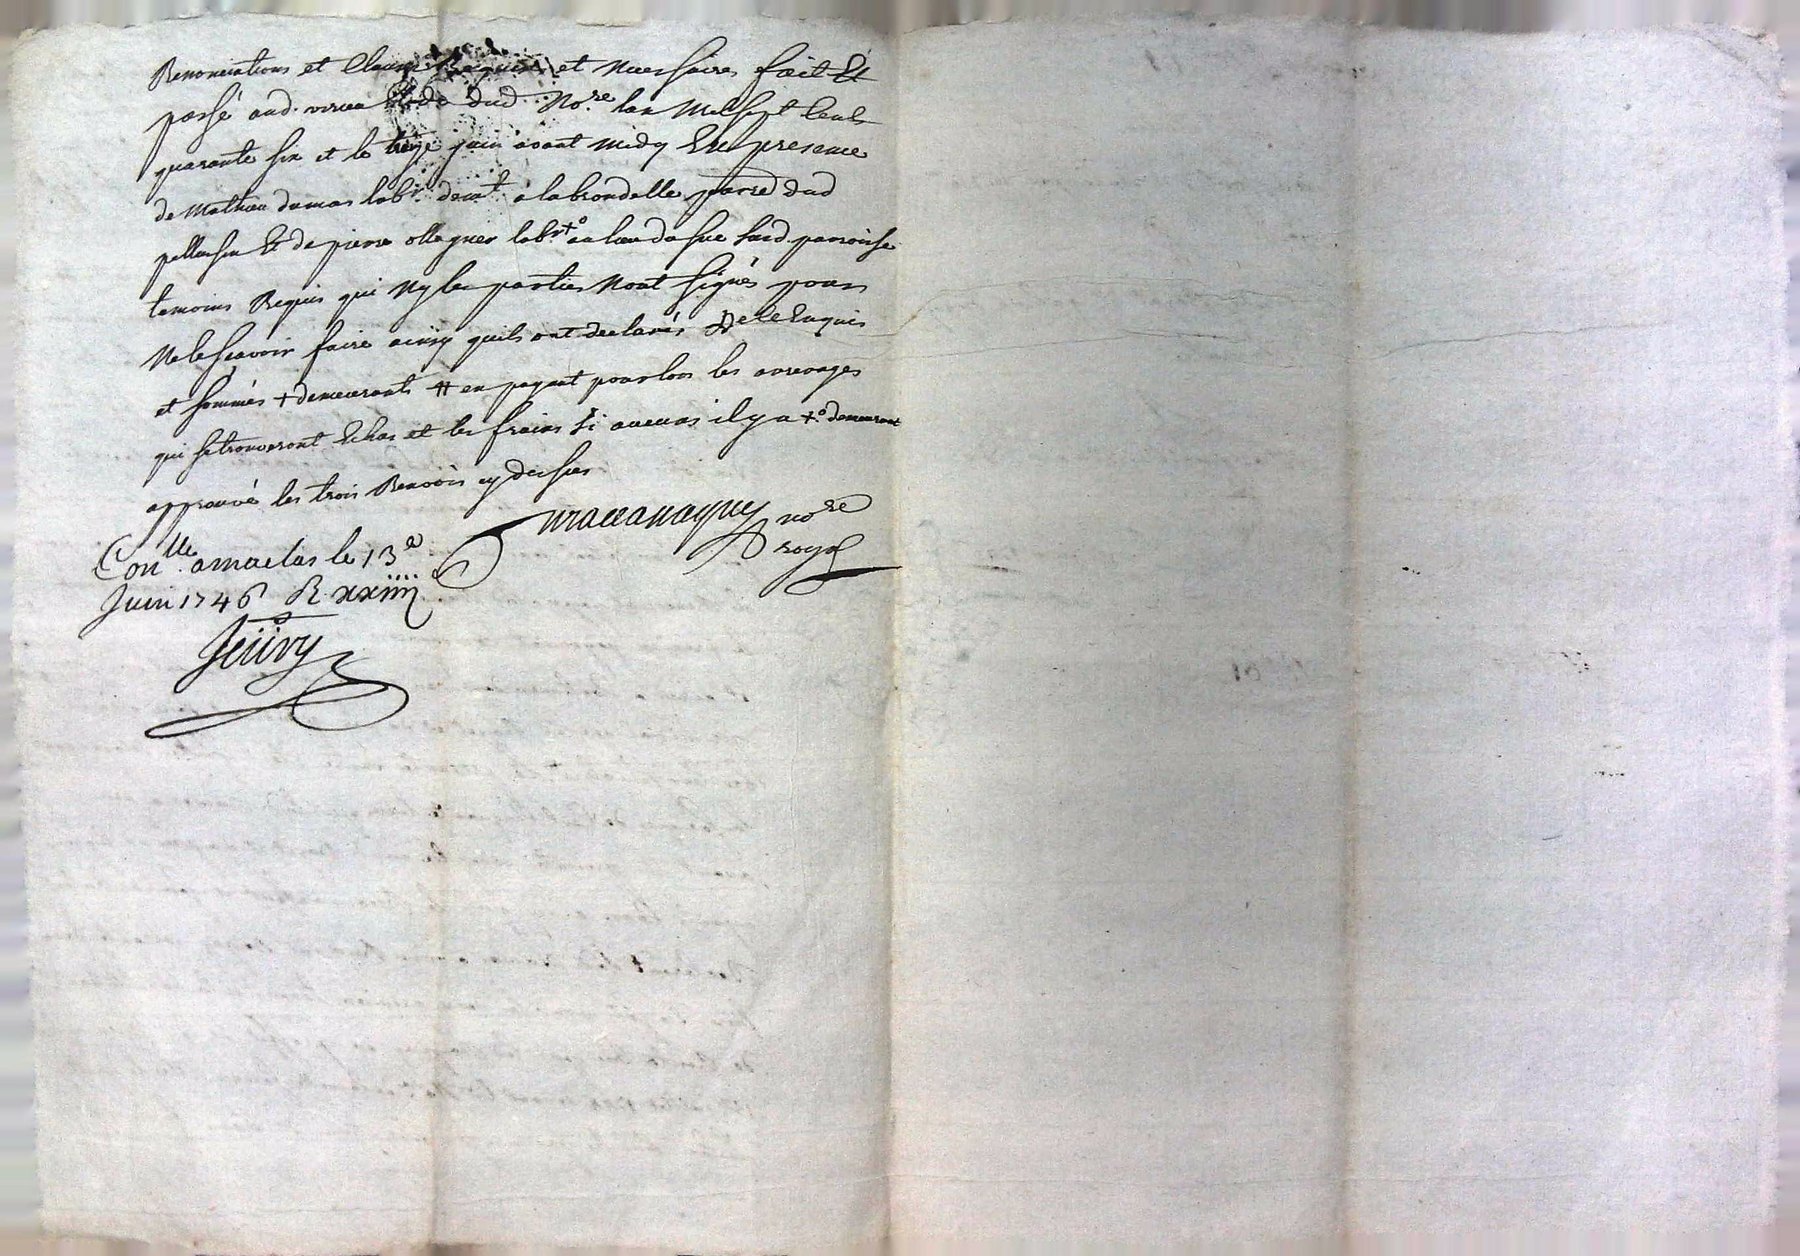 Renonciations et Clauses Requises et Necessaires fait Et
passé aud. virieu Etude dud. No.re lan Mil sept Cents
quarante six et le treize juin avant midy En presence
de Mathieu dumas lab.r dem.t a labrondelle parr.e dud
pellussin Et de pierre ollagner lab.r +o au lieu da sur lad. parroisse
temoins Requis qui Ny les parties Nont signés pour
Ne le scavoir faire ainsy quils ont declarés De ce Enquis
et sommés + demeurants # en payant pour lors les arrerages
qui se trouveront Echus et les fraix si aucuns il y a +o demeurant
approuvé les trois Renvois cy dessus
no.re
royal
Con.lle a maclas le 13e
Juin 1746 R xxiiii